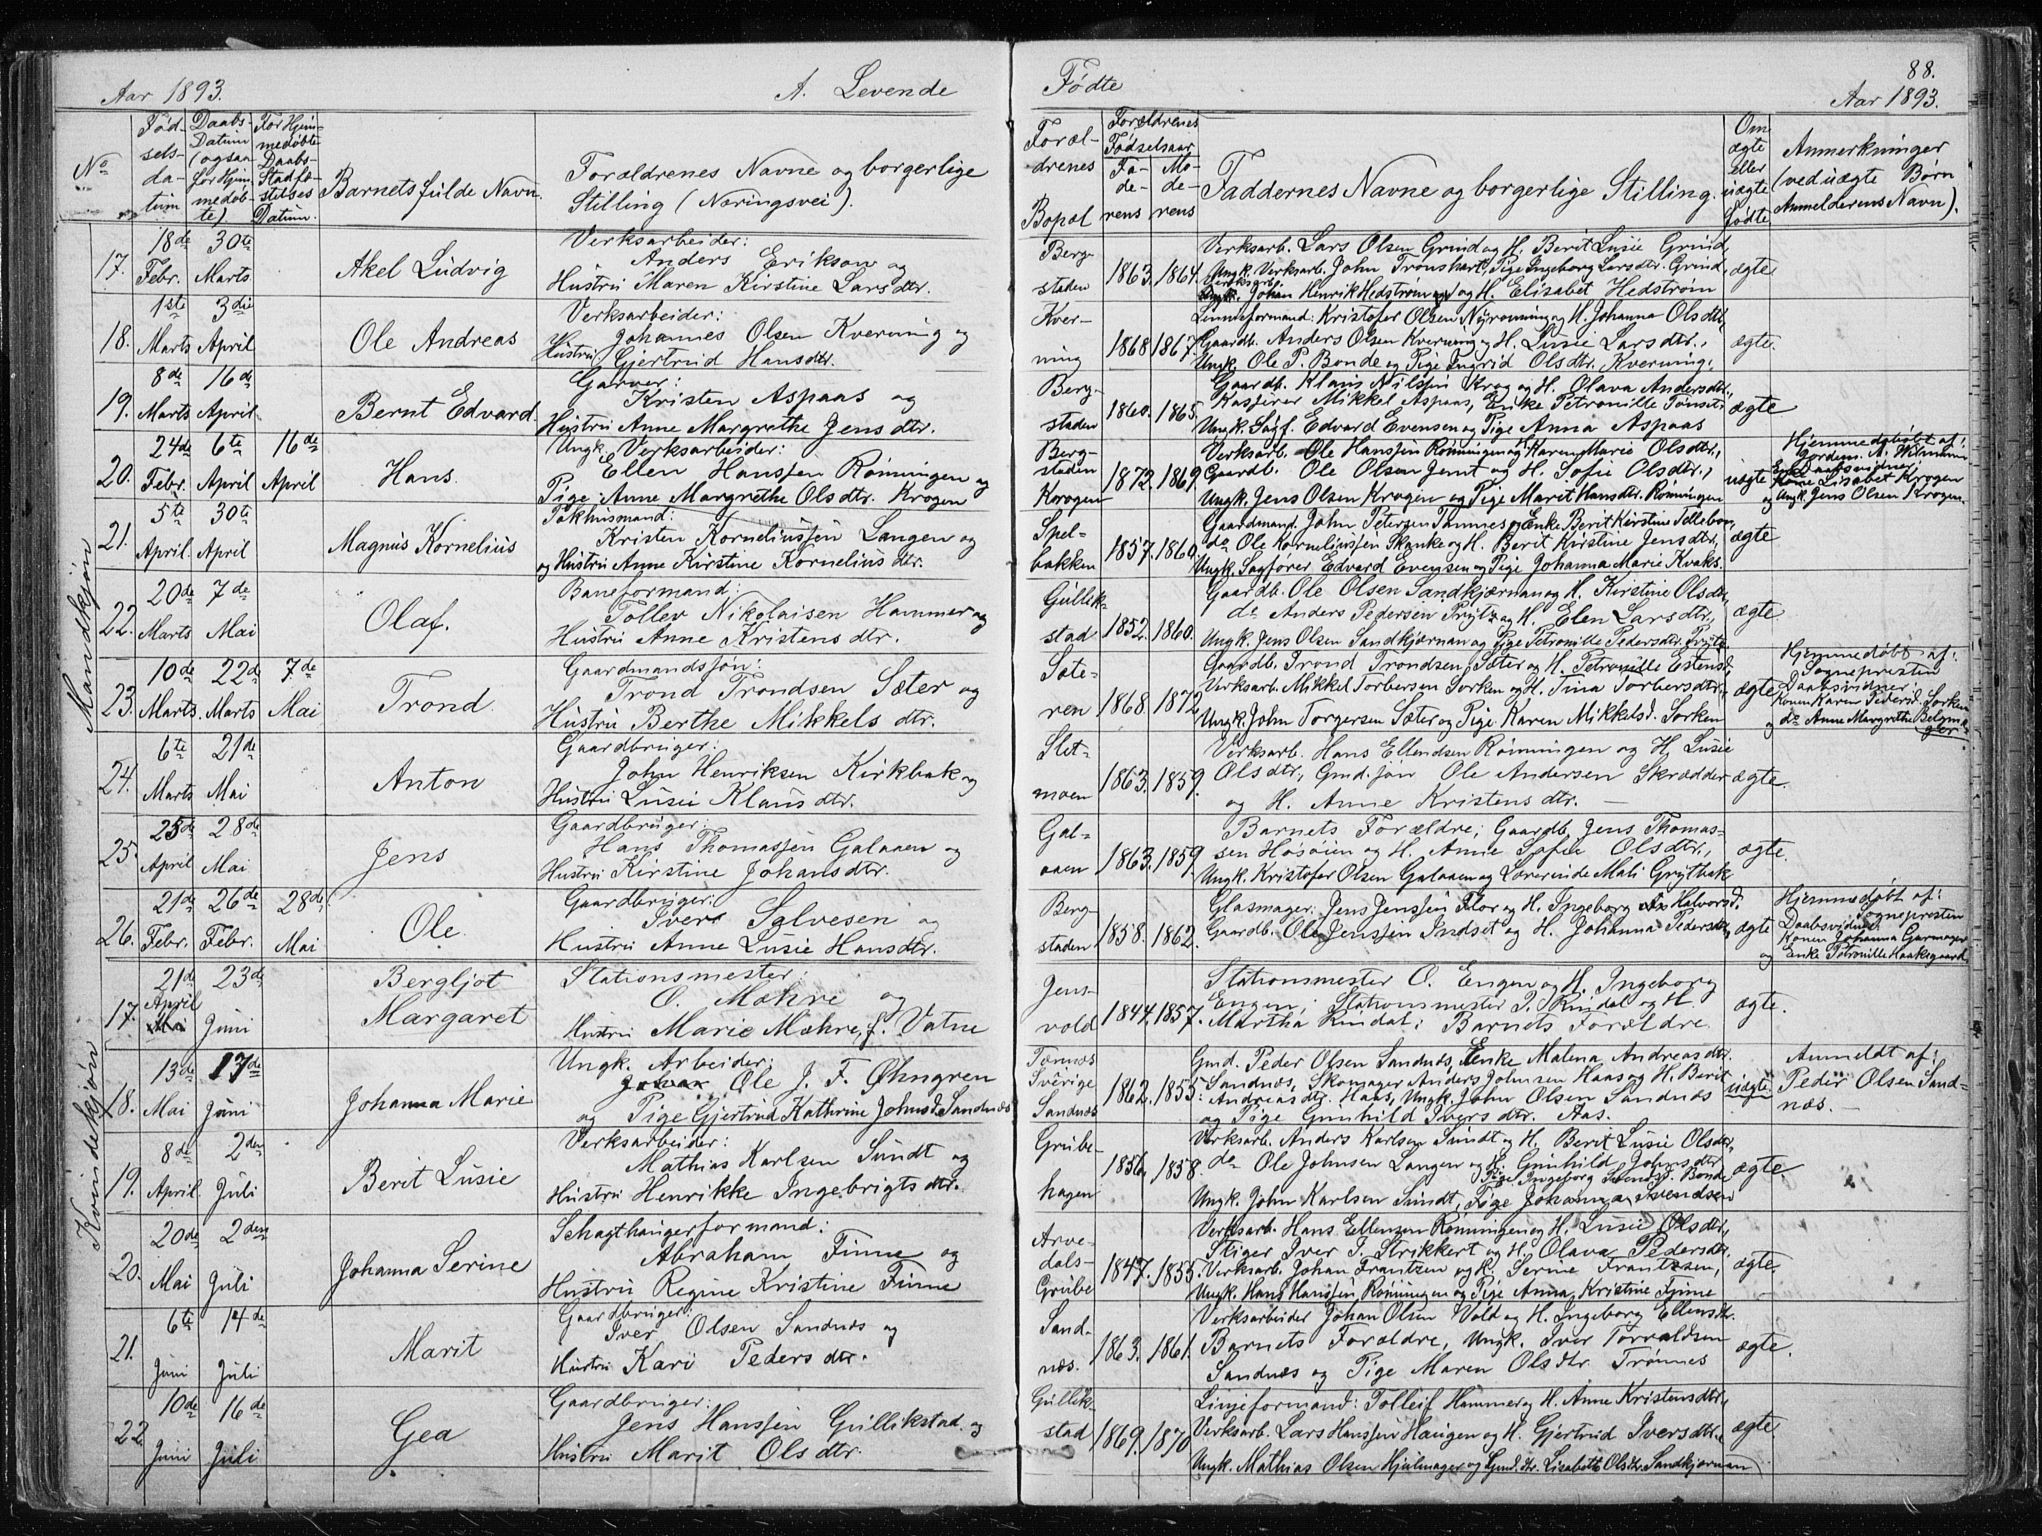 Aar 1893.
A. Levende
Fødte
88.
Aar 1893.
No
Fød-
sels-
da-
tum
Daabs-
Datum
(ogsaa
for Hjem-
medøb-
te).
For Hjem-
medøbte
Daabs-
Stadfæ-
stelses
Datum.
Barnets fulde Navn.
Forældrenes Navne og borgerlige
Stilling (Næringsvei).
Foræl-
drenes
Bopæl
Forældrenes
Fødselsaar
Fa-
de-
rens
Mo-
de-
rens
Faddernes Navne og borgerlige Stilling.
Om
ægte
eller
uægte
fødte
Anmerkninger
(ved uægte Børn
Anmelderens Navn).
Mandkjøn
17. 18de Febr. 30te Marts
Akel Ludvig
Verksarbeider:
Anders Erikson og
Hustru Maren Kirstine Larsdtr.
Berg-
staden
1863. 1864.
Verksarb. Lars Olsen Grind og H. Berit Lusie Grind,
Ungk. Verksarb. John Tronshart, Pige Ingeborg Larsdtr. Grind,
Verksarb. Johan Henrik Hedstrøm og H. Elisabet Hedstrøm
ægte
18. 1ste Marts 3die April
Ole Andreas
Verksarbeider:
Johannes Olsen Kverning og
Hustru Gjertrud Hansdtr.
Kver-
ning
1868 1867.
Linneformand: Kristofer Olsen Nyrønning og H. Johanna Olsdtr,
Gaardb. Anders Olsen Kverning og H. Lusie Larsdtr.,
Ungk. Ole P. Bonde og Pige Ingrid Olsdtr. Kverning.
ægte
19. 8de Marts 16de April
Bernt Edvard
Garver:
Kristen Aspaas og
Hustru Anne Margrethe Jensdtr.
Berg-
staden
1860. 1865.
Gaardb. Klaus Nilsen Krog og H. Olava Andersdtr.,
Kasserer Mikkel Aspaas, Enke Petronille Tønset,
Ungk. Sagf. Edvard Evensen og Pige Anna Aspaas
ægte
20. 24de Febr. 6te April 16de April
Hans.
Ungk. Verksarbeider:
Ellen Hanssen Rønningen og
Pige Anne Margrethe Olsdtr. Krogen
Berg-
staden
Krogen
1872. 1869.
Verksarb. Ole Hanssen Rønningen og Karen Marie Olsdtr.,
Gaardb. Ole Olsen Jemt og H. Sofie Olsdtr.,
Ungk. Jens Olsen Krogen og Pige Marit Hansdtr. Rønningen
uægte
Hjemmedøbt af:
Jordem. A.
Daabsvidner:
Kone Lisabet Krogen
og Ungk. Jens Olsen Krogen.
21. 5te April 30te April
Magnus Kornelius
Pakhusmand:
Kristen Korneliussen Langen og
og Hustru Anne Kirstine Korneliusdtr.
Spel-
bakken
1857. 1860.
Gaardmand. John Petersen Tamnes, Enke Berit Kirstine Tellebon,
do Ole Korneliussen Skanke og H. Berit Kirstine Jensdtr,
Ungk. Sagfører Edvard Evensen og Pige Johanna Marie Kvaks.
ægte
22. 20de Marts 7de Mai
Olaf.
Baneformand:
Tollev Nikolaisen Hammer og
Hustru Anne Kristensdtr.
Gullik-
stad
1852. 1860.
Gaardb. Ole Olsen Sandkjærnan og H. Kirstine Olsdtr,
do Anders Pedersen Prytz og H. Elen Larsdtr,
Ungk. Jens Olsen Sandkjærnan og Pige Petronille Pedersdtr. Prytz
ægte
23. 10de Marts 22de Marts 7de Mai
Trond.
Gaardmandssøn:
Trond Trondsen Sæter og
Hustru Berthe Mikkelsdtr.
Sæte-
ren
1868. 1872
Gaardb. Trond Trondsen Sæter og H. Petronille Estensd.
Verksarb. Mikkel Torbersen Sorken og H. Tina Torbersdtr.,
Ungk. John Torgersen Sæter og Pige Karen Mikkelsd. Sorken
ægte
Hjemmedøbt af:
Sognepresten
Daabsvidner:
Konen Karen Pedersd. Sorken
og do Anne Margrethe
24. 6te Marts 21de Mai
Anton
Gaardbruger:
John Henriksen Kirkbak og
Hustru Lusie Klausdtr.
Slet-
moen
1863. 1859.
Verksarb. Hans Ellendsen Rønningen og H. Lusie
Olsdtr., Gmd.søn Ole Andersen Skrædder
og H. Anne Kristensdtr.
ægte.
25. 25de April 28de Mai
Jens
Gaardbruger:
Hans Thomassen Galaaen og
Hustru Kirstine Johansdtr.
Gal-
aaen
1863. 1859.
Barnets Forældre; Gaardb. Jens Thomas-
sen Høsøien og H. Anne Sofie Olsdtr.,
Ungk. Kristofer Olsen Galaaen og Lærerinde Mali Grytbak
ægte.
26. 21de Febr. 26de Febr. 28de Mai
Ole.
Gaardbruger:
Iver Sylvesen og
Hustru Anne Lusie Hansdtr.
Berg-
staden
1858. 1862.
Glasmager: Jens Jenssen Flor og H. Ingeborg Halvorsd.
Gaardb. Ole Jenssen Indset og H. Johanna Pedersdtr,
ægte
Hjemmedøbt af:
Sognepresten
Daabsvidner:
Konen Johanna Garmager
og Enke Petronille Haaksgaard.
Kvindekjøn
17. 21de April 23de Juni
Bergljot
Margaret
Stationsmester:
O. Mæhre og
Hustru Marie Mæhre, f. Vatne
Jens-
vold
1844. 1857.
Stationsmester O. Engen og H. Ingeborg
Engen; Stationsmester P. Rindal og H.
Martha Rindal; Barnets Forældre.
ægte.
18. 13de Mai 17de Juni
Johanna Marie
Ungk. Arbeider:
Ole J. F. Øhngren
og Pige Gjertrud Kathrine Johnsd. Sandnæs
Tørnæs
Sverige
Sandnæs
1862. 1855.
Gmd. Peder Olsen Sandnæs, Enke Malena Andreasdtr.
Sandnæs, Skomager Anders Johnsen Haas og H. Berit
Andreasdtr. Haas, Ungk. John Olsen Sandnæs
og Pige Gunhild Iversdtr. Aas.
uægte
Anmeldt af:
Peder Olsen Sand-
næs.
19. 8de April 2den Juli
Berit Lusie
Verksarbeider:
Mathias Karlsen Sundt og
Hustru Henrikke Ingebrigtsdtr.
Grube-
hagen
1856. 1858.
Verksarb. Anders Karlsen Sundt og H. Berit Lusie Olsdtr,
do Ole Johnsen Langen og H. Gunhild Johnsdtr
Pige Ingeborg Svendsd. Bonde
Ungk. John Karlsen Sundt, Pige Johanna Svendsen
ægte.
20. 20de Mai 2den Juli
Johanna Serine
Schagthaugerformand:
Abraham Finne og
Hustru Regine Kristine Finne
Arve-
dals-
Grube
1847. 1855.
Verksarb. Hans Ellensen Rønningen og H. Lusie Olsdtr,
Stiger Iver T. Strikkert og H. Olava Pedersdtr.
Verksarb. Johan Frantzen og H. Serine Frantzsen,
Ungk. Hans Hanssen Rønningen og Pige Anna Kristine Finne
ægte.
21. 6te Juni 14de Juli
Marit
Gaardbruger:
Iver Olsen Sandnæs og
Hustru Kari Pedersdtr.
Sand-
næs.
1863. 1861.
Verksarbeider Johan Olsen Vold og H. Ingeborg Ellensdtr.
Barnets Forældre, Ungk. Iver Torvaldsen
Sandnæs og Pige Maren Olsdtr Trønnes
ægte.
22. 10de Juni 16de Juli
Gea
Gaardbruger:
Jens Hanssen Gullikstad og
Hustru Marit Olsdtr.
Gullik-
stad
1869. 1870
Linjeformand: Tolleif Hammer og H. Anne Kristensdtr,
Verksarb. Lars Hanssen Haugen og H. Gjertrud Iversdtr.,
Ungk. Mathias Olsen Hjulmager og Gmd.dtr. Lisabeth Olsdtr. Sandkjærnan
ægte